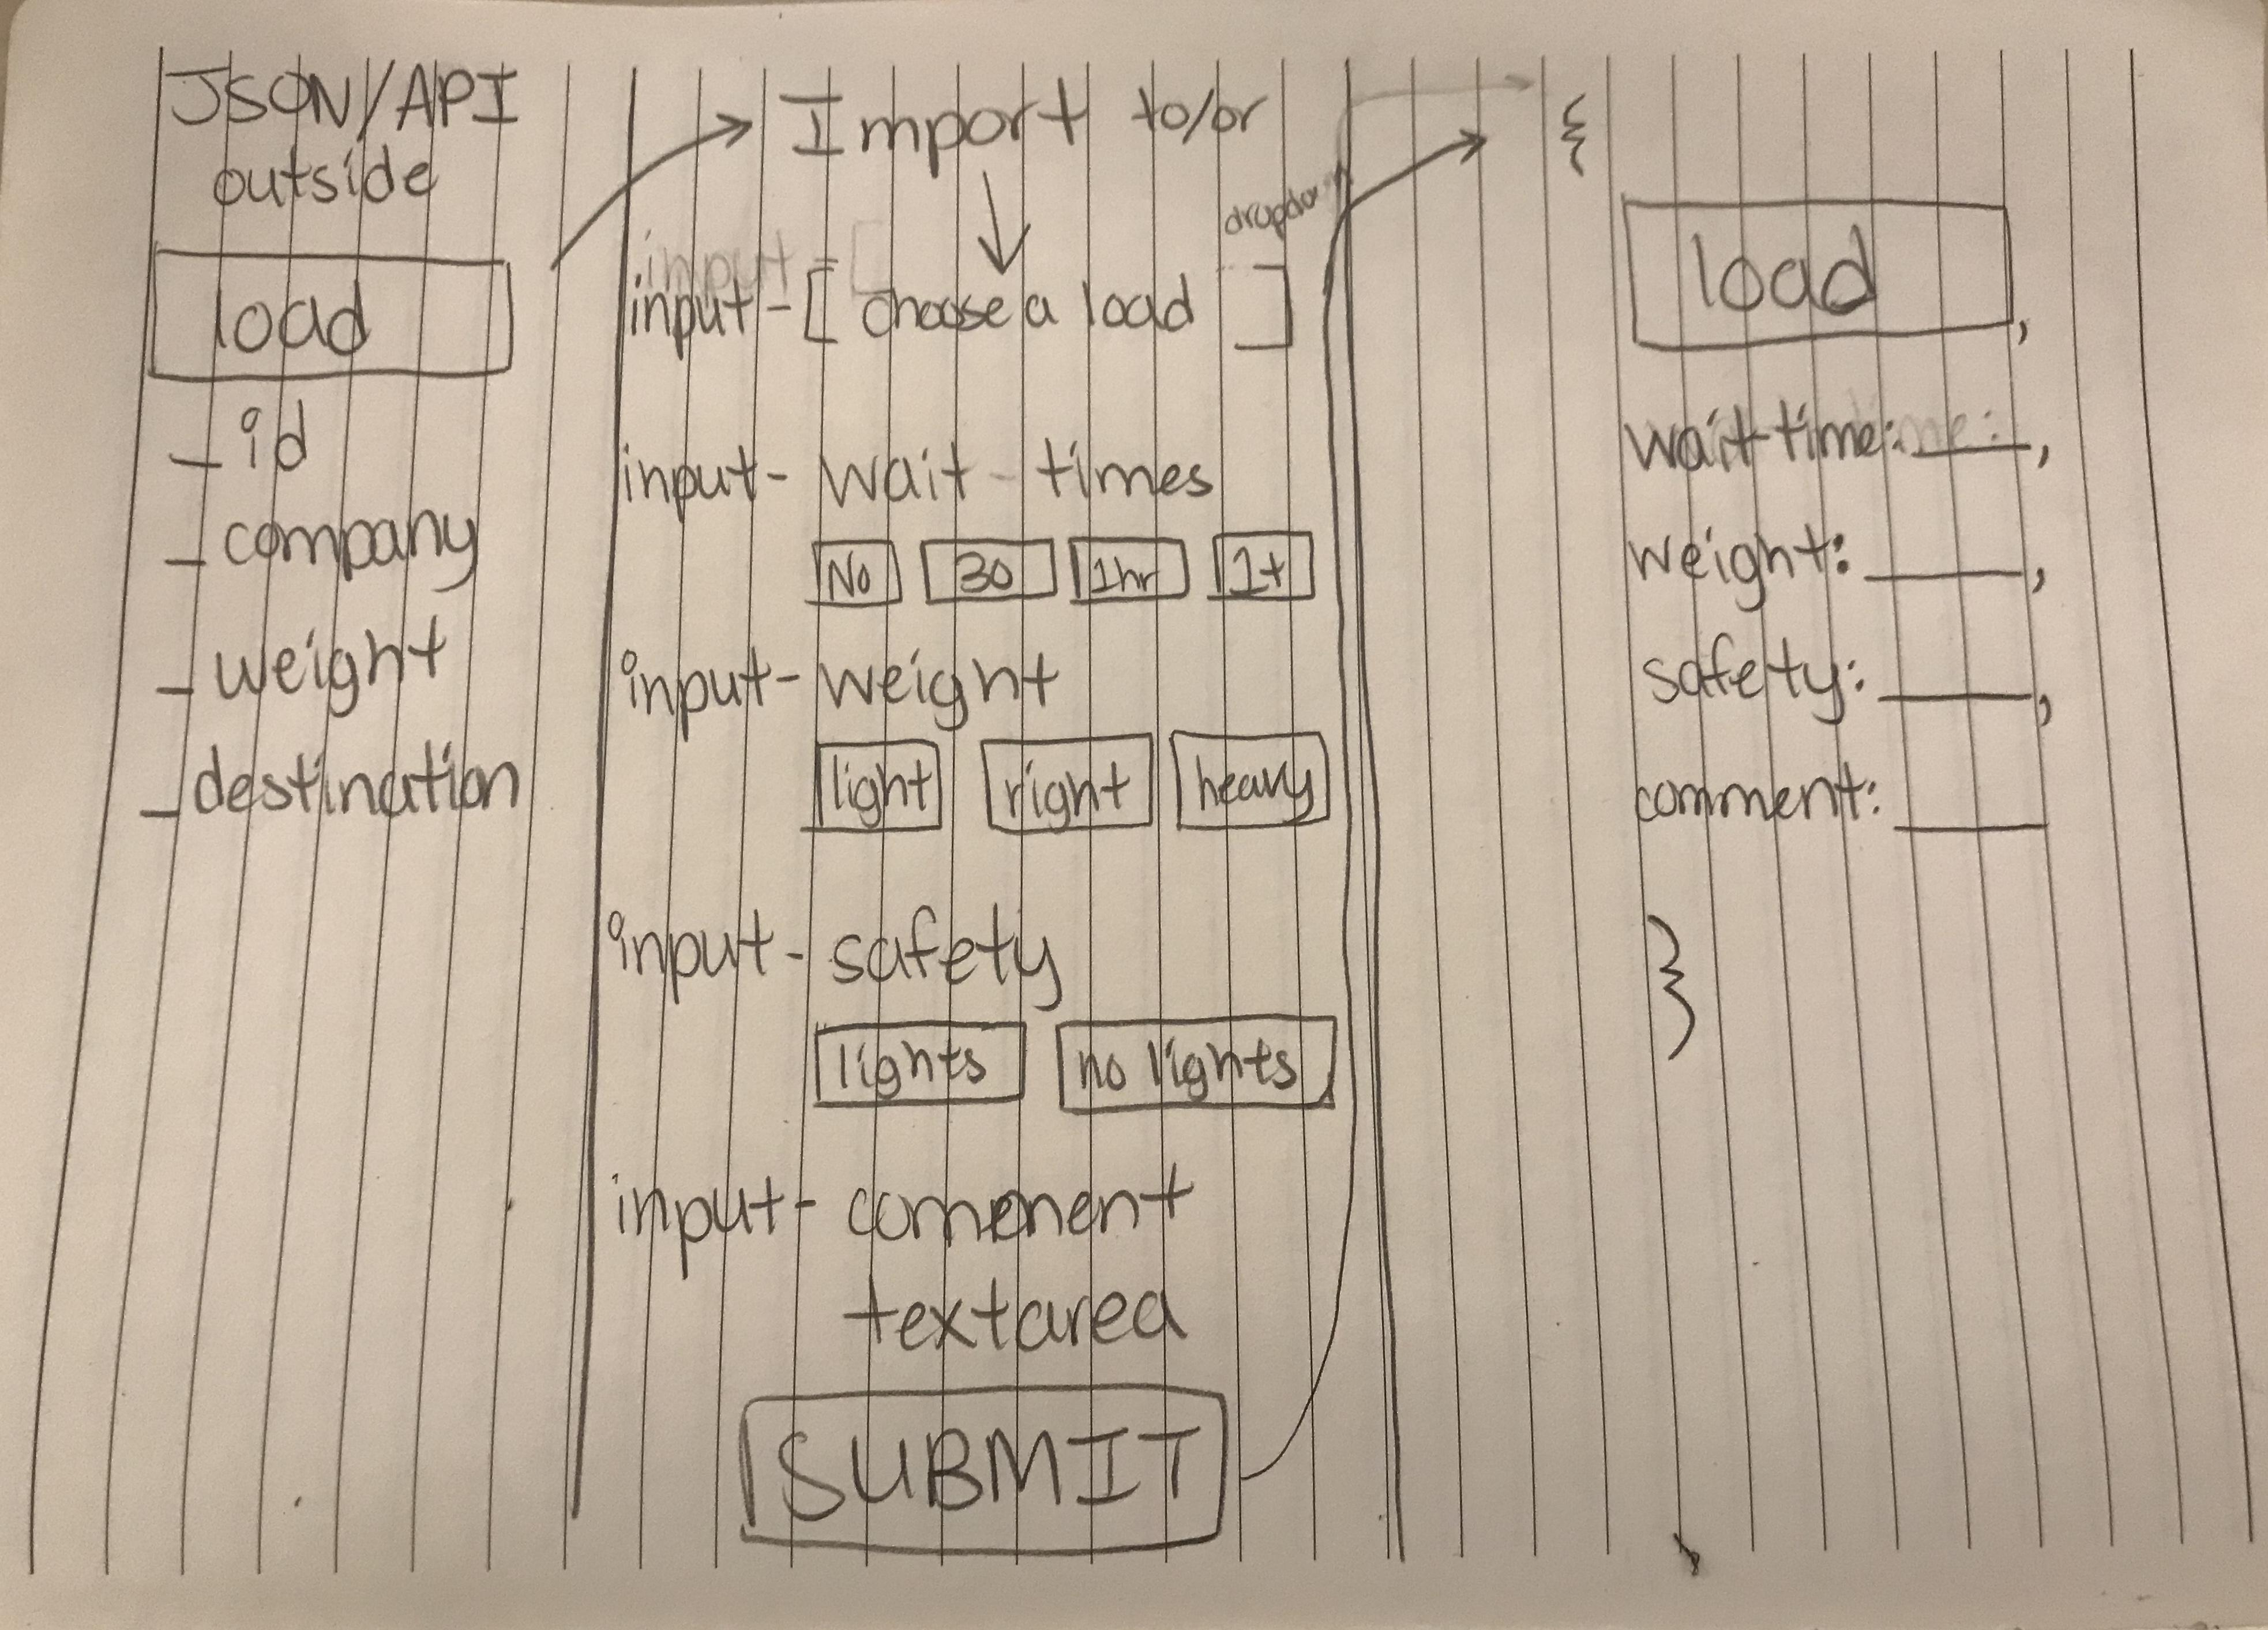 JSON/API
outside
load
- id
- company
- weight
- destination
Import to/or
dropdown
input - [ choose a load ]
input - wait - times
No 30 1hr 1+
input - weight
light right heavy
input - safety
lights no lights
input - comment
textarea
SUBMIT
{
load ,
wait time: ____,
weight: ____,
safety: ____,
comment: ____
}